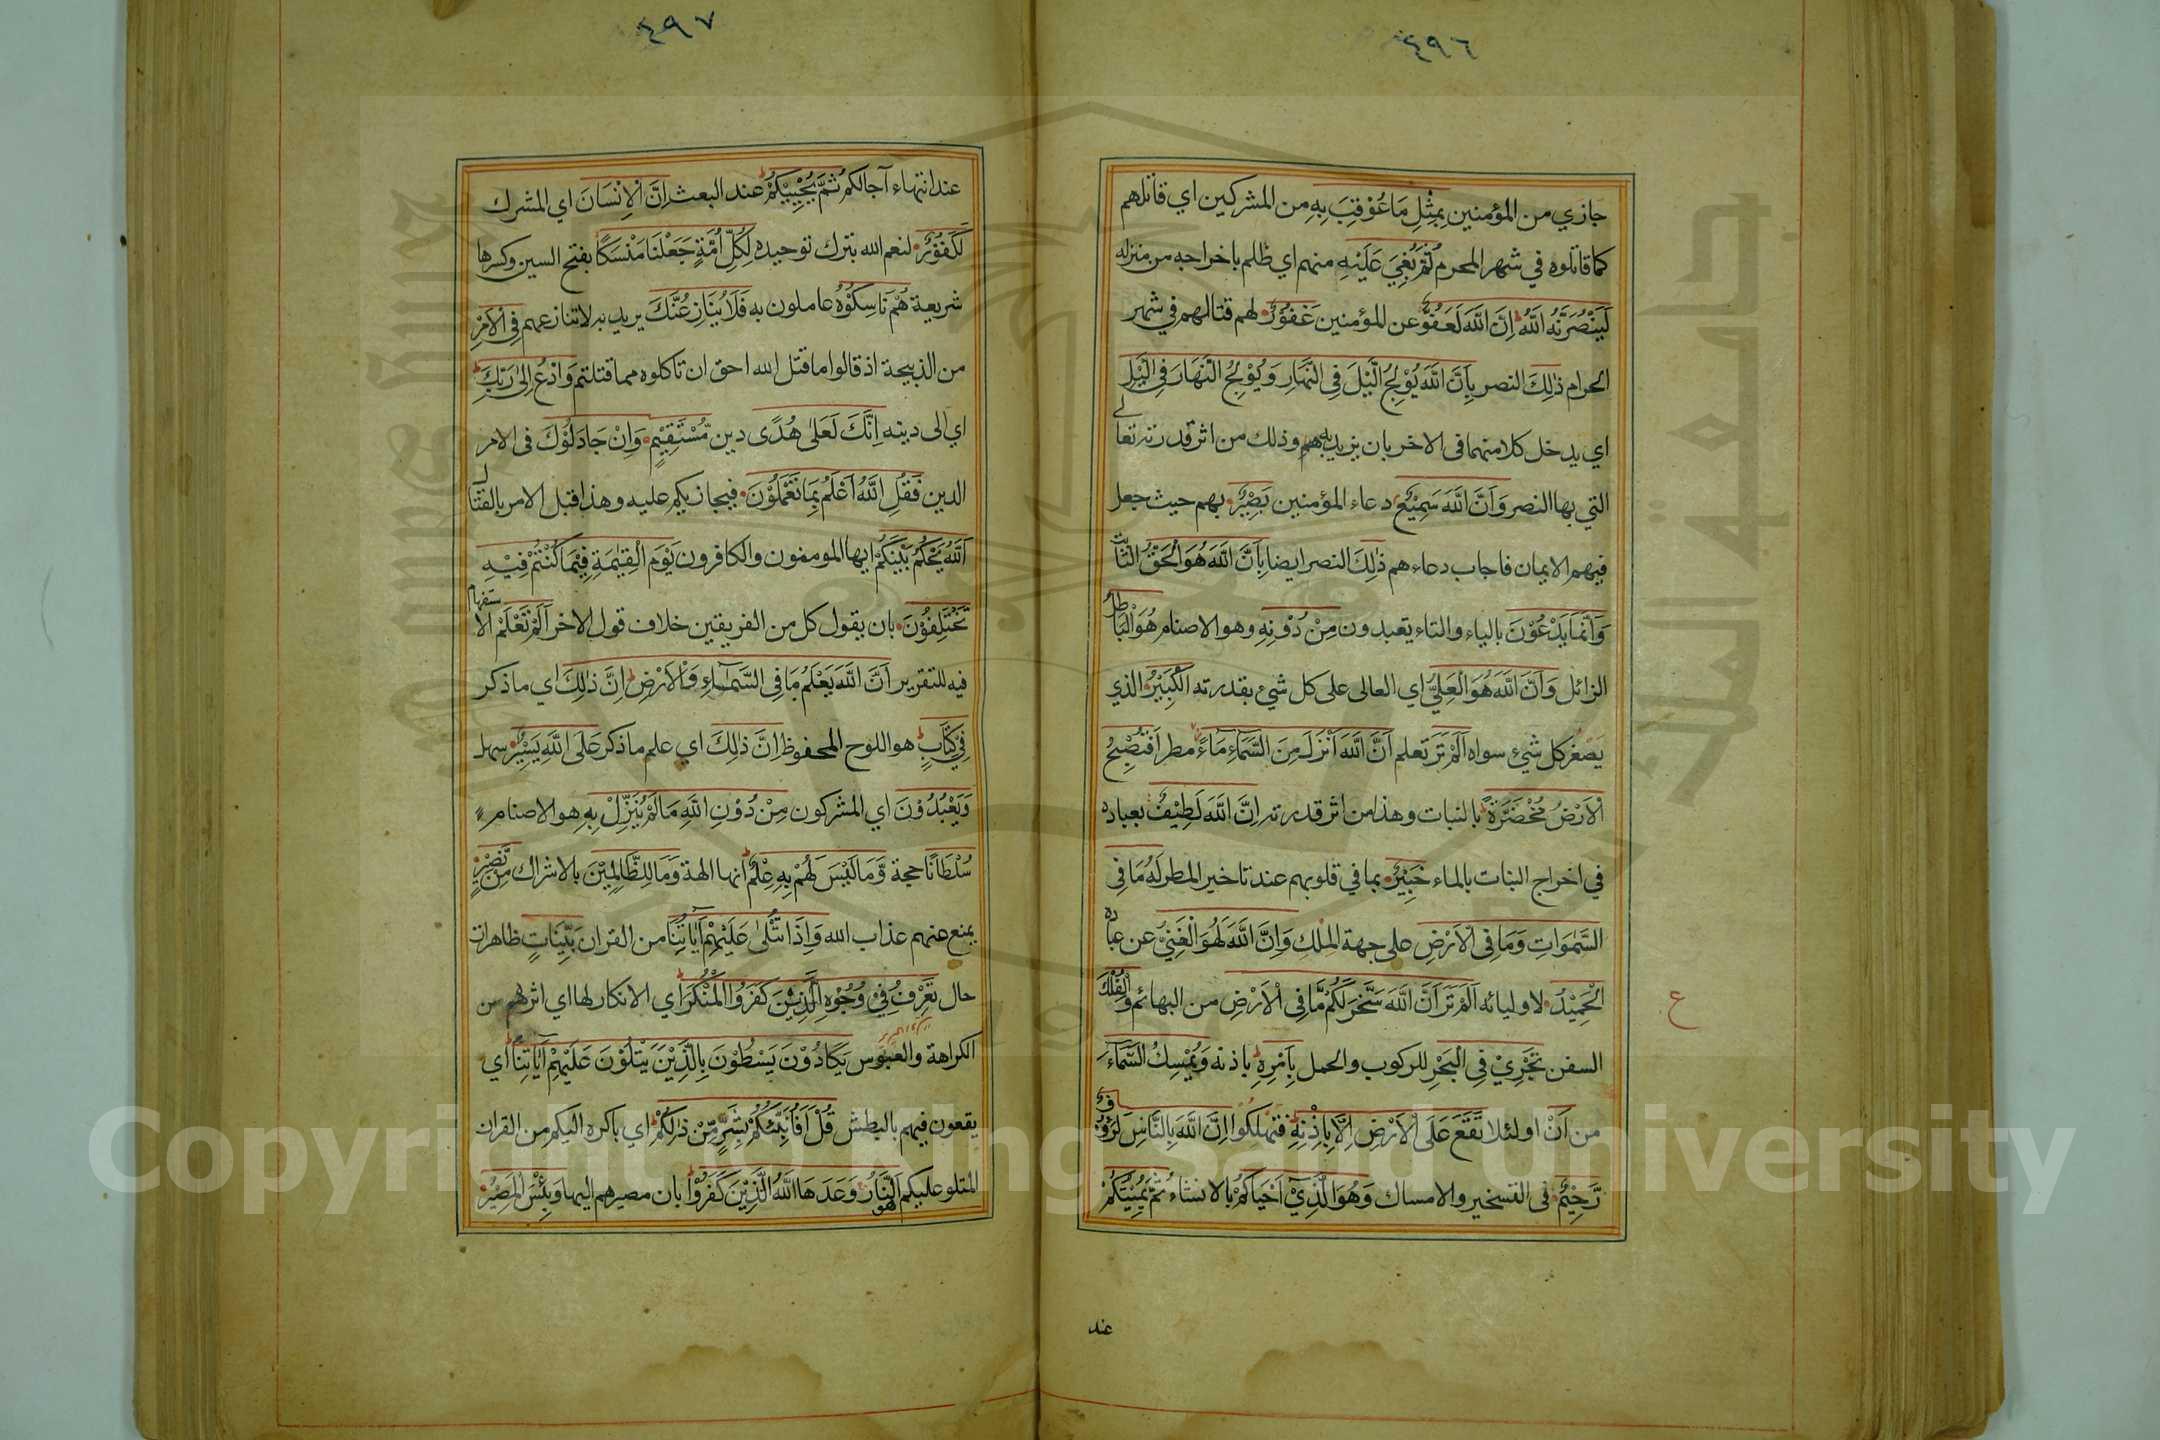 ٤٩٦
جازي من المؤمنين بِمِثْلِ مَا عُوْقِبَ بِهِ من المشركين اي قاتلهم
كما قاتلوه في شهر المحرم ثُمَّ بُغِيَ عَلَيْهِ منهم اي ظلم باخراجه من منزله
لَيَنْصُرَنَّهُ اللّٰهُ اِنَّ اللّٰهَ لَعَفُوٌّ عن المؤمنين غَفُوْرٌ لهم قتالهم في شهر
الحرام ذٰلِكَ النصر بِاَنَّ اللّٰهَ يُوْلِجُ الَّيْلَ فِى النَّهَارِ وَيُوْلِجُ النَّهَارَ فِى الَّيْلِ
اي يدخل كلا منهما فى الاخر بان يزيد به وذلك من اثر قدرته تعالى
التي بها النصر وَاَنَّ اللّٰهَ سَمِيْعٌ دعاء المؤمنين بَصِيْرٌ بهم حيث جعل
فيهم الايمان فاجاب دعاءهم ذٰلِكَ النصر ايضا بِاَنَّ اللّٰهَ هُوَ الْحَقُّ الثابت
وَاَنَّمَا يَدْعُوْنَ بالياء والتاء يعبدون مِنْ دُوْنِهِ وهو الاصنام هُوَ الْبَاطِلُ
الزائل وَاَنَّ اللّٰهَ هُوَ الْعَلِيُّ اي العالى على كل شيء بقدرته الْكَبِيْرُ الذي
يصغر كل شيء سواه اَلَمْ تَرَ تعلم اَنَّ اللّٰهَ اَنْزَلَ مِنَ السَّمَآءِ مَآءً مطرا فَتُصْبِحُ
الْاَرْضُ مُخْضَرَّةً بالنبات وهذا من اثر قدرته اِنَّ اللّٰهَ لَطِيْفٌ بعباده
في اخراج النبات بالماء خَبِيْرٌ بما في قلوبهم عند تاخير المطر لَهُ مَا فِى
السَّمٰوَاتِ وَمَا فِى الْاَرْضِ على جهة الملك وَاِنَّ اللّٰهَ لَهُوَ الْغَنِيُّ عن عباده
الْحَمِيْدُ لاوليائه اَلَمْ تَرَ اَنَّ اللّٰهَ سَخَّرَ لَكُمْ مَّا فِى الْاَرْضِ من البهائم وَالْفُلْكَ
ع
السفن تَجْرِيْ فِى الْبَحْرِ للركوب والحمل بِاَمْرِهِ باذنه وَيُمْسِكُ السَّمَآءَ
من اَنْ او لئلا تَقَعَ عَلَى الْاَرْضِ اِلَّا بِاِذْنِهِ فتهلكوا اِنَّ اللّٰهَ بِالنَّاسِ لَرَؤُوْفٌ
رَّحِيْمٌ فى التسخير والامساك وَهُوَ الَّذِيْ اَحْيَاكُمْ بالانشاء ثُمَّ يُمِيْتُكُمْ
عند
٤٩٧
عند انتهاء آجالكم ثُمَّ يُحْيِيْكُمْ عند البعث اِنَّ الْاِنْسَانَ اي المشرك
لَكَفُوْرٌ لنعم الله بترك توحيده لِكُلِّ اُمَّةٍ جَعَلْنَا مَنْسَكًا بفتح السين وكسرها
شريعة هُمْ نَاسِكُوْهُ عاملون به فَلَا يُنَازِعُنَّكَ يريد به لا تنازعهم فِى الْاَمْرِ
من الذبيحة اذ قالوا ما قتل الله احق ان تاكلوه مما قتلتم وَادْعُ اِلٰى رَبِّكَ
اي الى دينه اِنَّكَ لَعَلٰى هُدًى دين مُّسْتَقِيْمٍ وَاِنْ جَادَلُوْكَ فى الامر
الدين فَقُلِ اللّٰهُ اَعْلَمُ بِمَا تَعْمَلُوْنَ فيجازيكم عليه وهذا قبل الامر بالقتال
اَللّٰهُ يَحْكُمُ بَيْنَكُمْ ايها المومنون والكافرون يَوْمَ الْقِيٰمَةِ فِيْمَا كُنْتُمْ فِيْهِ
تَخْتَلِفُوْنَ بان يقول كل من الفريقين خلاف قول الاخر اَلَمْ تَعْلَمْ الاستفهام
فيه للتقرير اَنَّ اللّٰهَ يَعْلَمُ مَا فِى السَّمَآءِ وَالْاَرْضِ اِنَّ ذٰلِكَ اي ما ذكر
فِيْ كِتَابٍ هو اللوح المحفوظ اِنَّ ذٰلِكَ اي علم ما ذكر عَلَى اللّٰهِ يَسِيْرٌ سهل
وَيَعْبُدُوْنَ اي المشركون مِنْ دُوْنِ اللّٰهِ مَا لَمْ يُنَزِّلْ بِهِ هو الاصنام
سُلْطَانًا حجة وَّمَا لَيْسَ لَهُمْ بِهِ عِلْمٌ انها الهة وَمَا لِلظَّالِمِيْنَ بالاشراك مِنْ نَّصِيْرٍ
يمنع عنهم عذاب الله وَاِذَا تُتْلٰى عَلَيْهِمْ اٰيَاتُنَا من القران بَيِّنَاتٍ ظاهرات
حال تَعْرِفُ فِيْ وُجُوْهِ الَّذِيْنَ كَفَرُوا الْمُنْكَرَ اي الانكار لها اي اثرهم من
الكراهة والعبوس يَكَادُوْنَ يَسْطُوْنَ بِالَّذِيْنَ يَتْلُوْنَ عَلَيْهِمْ اٰيَاتِنَا اي
يقعون فيهم بالبطش قُلْ اَفَاُنَبِّئُكُمْ بِشَرٍّ مِّنْ ذٰلِكُمْ اي باكره اليكم من القران
المتلو عليكم هو النَّارُ وَعَدَهَا اللّٰهُ الَّذِيْنَ كَفَرُوْا بان مصيرهم اليها وَبِئْسَ الْمَصِيْرُ
Copyright © King Saud University